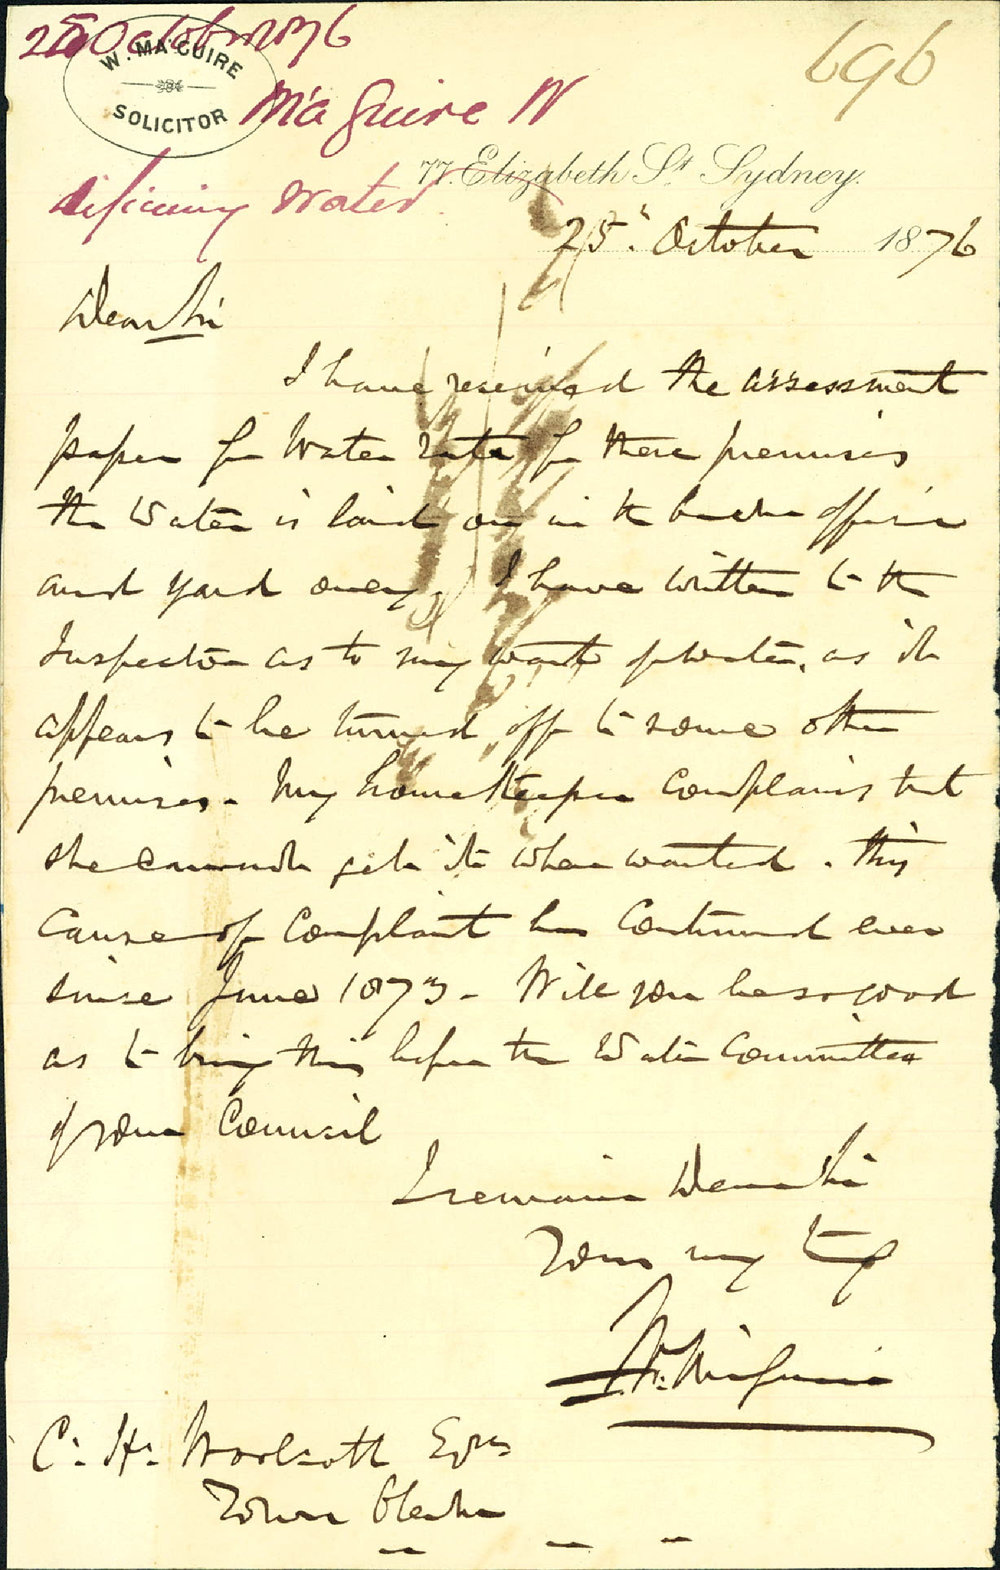 25 October 1876
696
W. MA'GUIRE
SOLICITOR
Ma'Guire W
77. Elizabeth St. Sydney.
Water
25. October 1876
Dear Sir
I have received the assessment
paper for Water Rate for these premises
the Water is laid on in the back office
and yard only. I have written to the
Inspector as to my want of water, as it
appears to be turned off to some other
premises. My housekeeper complains that
she cannot get it when wanted. This
cause of complaint has continued ever
since June 1873 - Will you be so good
as to bring this before the Water Committee
of your Council
I remain Dear Sir
Yours very truly
W. Ma'Guire
C. H. Woolcott Esqre
Town Clerk